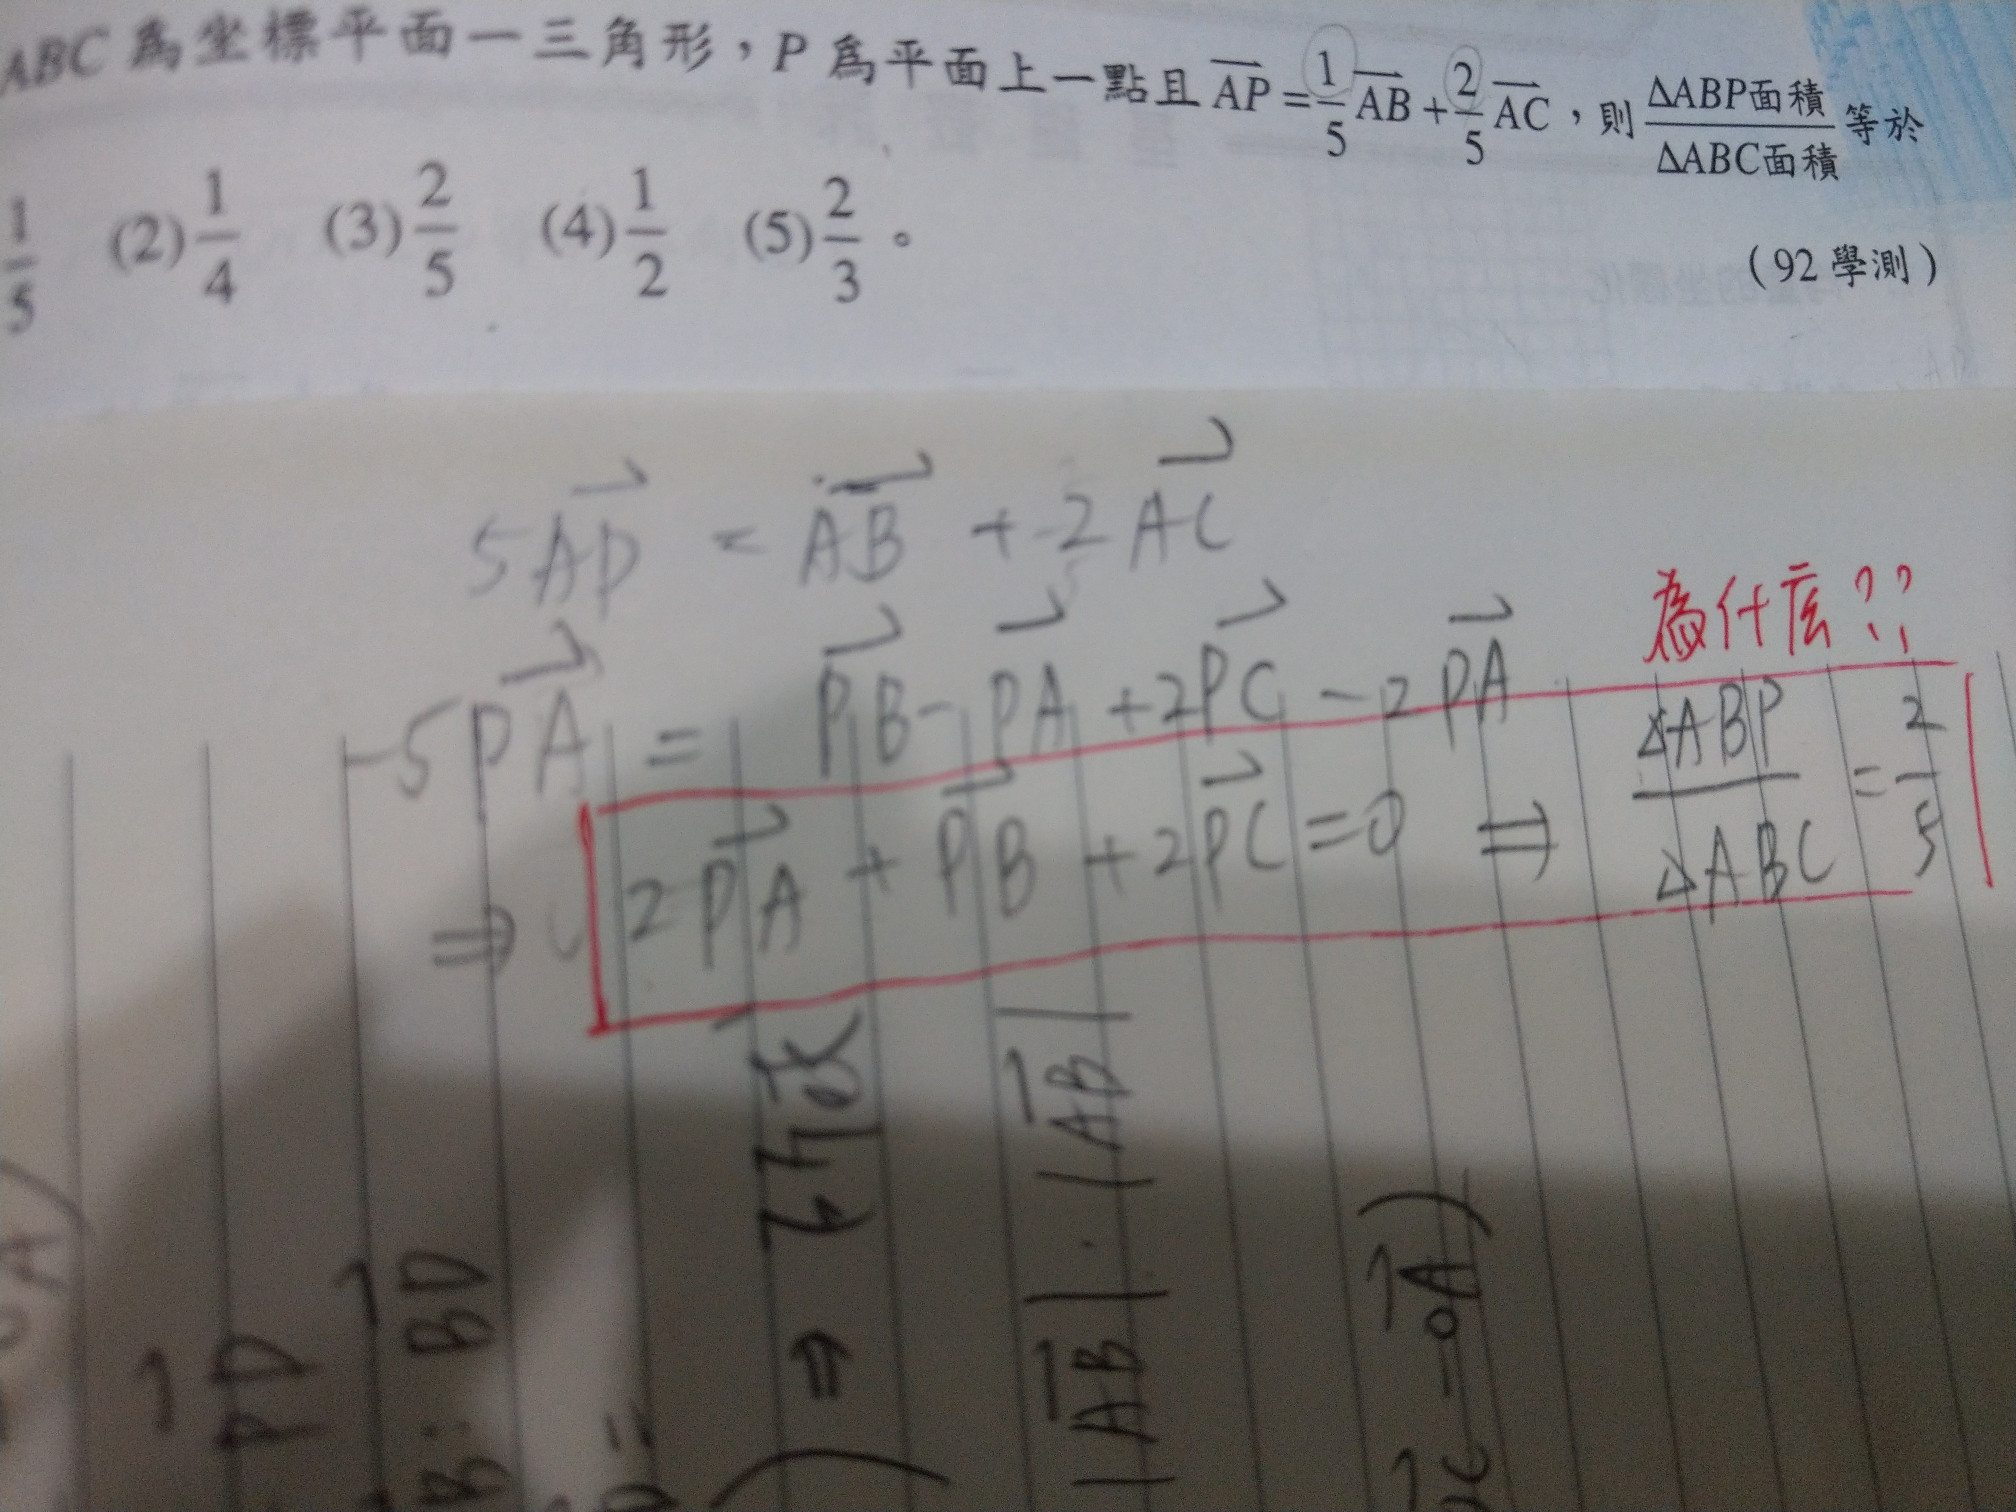 ABC 為坐標平面一三角形，P 為平面上一點且 $\overrightarrow{AP}=\frac{1}{5}\overrightarrow{AB}+\frac{2}{5}\overrightarrow{AC}$，則 $\frac{\Delta ABP面積}{\Delta ABC面積}$ 等於
$\frac{1}{5}$ (2)$\frac{1}{4}$ (3)$\frac{2}{5}$ (4)$\frac{1}{2}$ (5)$\frac{2}{3}$。
(92 學測)
$5\overrightarrow{AP} = \overrightarrow{AB} + 2\overrightarrow{AC}$
為什麼??
$-5\overrightarrow{PA} = \overrightarrow{PB} - \overrightarrow{PA} + 2\overrightarrow{PC} - 2\overrightarrow{PA}$
$\Rightarrow 2\overrightarrow{PA} + \overrightarrow{PB} + 2\overrightarrow{PC} = 0 \Rightarrow \frac{\Delta ABP}{\Delta ABC} = \frac{2}{5}$
$|\overrightarrow{AB}| \cdot |\overrightarrow{AB}|$
$-\overrightarrow{OA})$
$\overrightarrow{BD}$
$\overrightarrow{PD}$